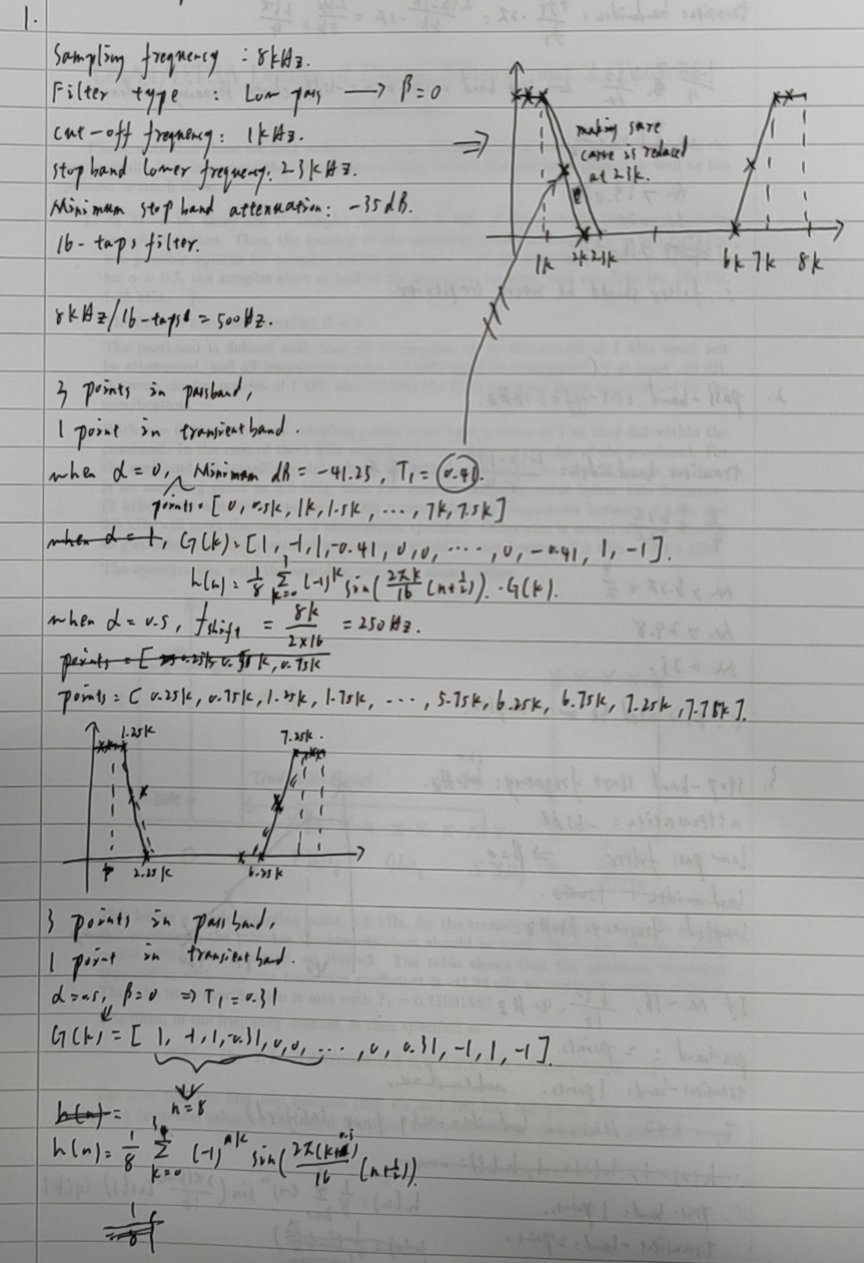 1.
Sampling frequency : 8kHz.
Filter type : Low pass → β=0
cut-off frequency: 1kHz.
stop band lower frequency: 2.3kHz.
Minimum stop band attenuation: -35dB.
16-taps filter.
⇒
making sure
curve is reduced
at 2.3k.
1k 2k 2.3k 6k 7k 8k
8kHz/16-taps = 500Hz.
3 points in passband,
1 point in transient band.
when α=0, Minimum dB = -41.25, T₁ = 0.41.
points = [0, 0.5k, 1k, 1.5k, ..., 7k, 7.5k]
when α=1, G(k) = [1, -1, 1, -0.41, 0, 0, ..., 0, -0.41, 1, -1].
h(n) = 1/8 Σ k=0 (-1)^k sin(2πk/16 (n+1/2)) · G(k).
when α=0.5, f shift = 8k/(2×16) = 250Hz.
points = [ 0.25k, 0.75k
points = [0.25k, 0.75k, 1.25k, 1.75k, ..., 5.75k, 6.25k, 6.75k, 7.25k, 7.75k].
1.25k 7.25k
2.25k 6.25k
3 points in passband,
1 point in transient band.
α=0.5, β=0 ⇒ T₁=0.31
G(k) = [1, -1, 1, -0.31, 0, 0, ..., 0, 0.31, -1, 1, -1].
n=8
h(n) =
h(n) = 1/8 Σ k=0 (-1)^k sin(2π(k+0.5)/16 (n+1/2)).
1/8